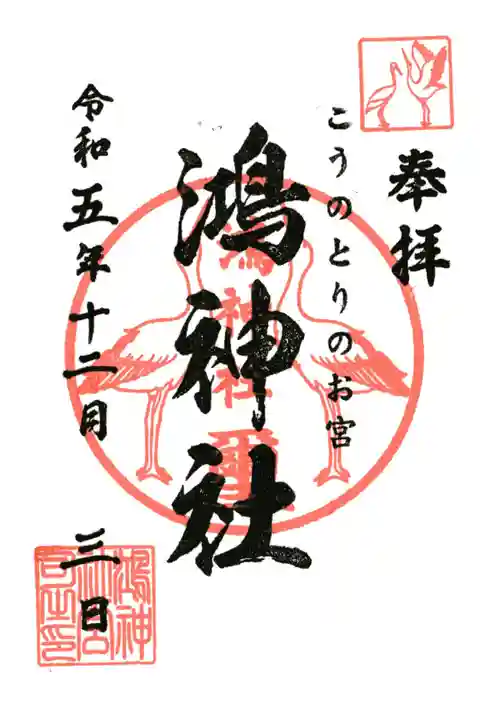 奉拝
こうのとりのお宮
鴻神社
鴻神社璽
令和五年十二月三日